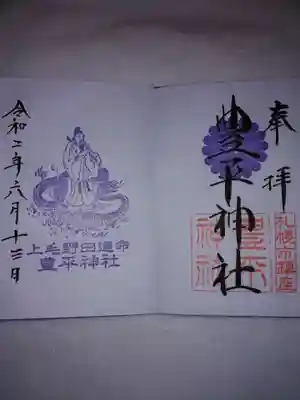 奉拝
豊平神社
札幌市鎮座
豊平神社
上毛野田道命
豊平神社
令和二年六月十三日